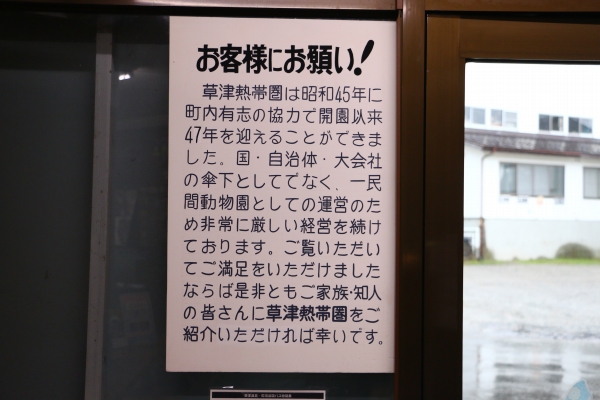 お客様にお願い!
草津熱帯圏は昭和45年に
町内有志の協力で開園以来
47年を迎えることができま
した。国・自治体・大会社
の傘下としてでなく、一民
間動物園としての運営のた
め非常に厳しい経営を続け
ております。ご覧いただい
てご満足をいただけました
ならば是非ともご家族・知人
の皆さんに草津熱帯圏をご
紹介いただければ幸いです。